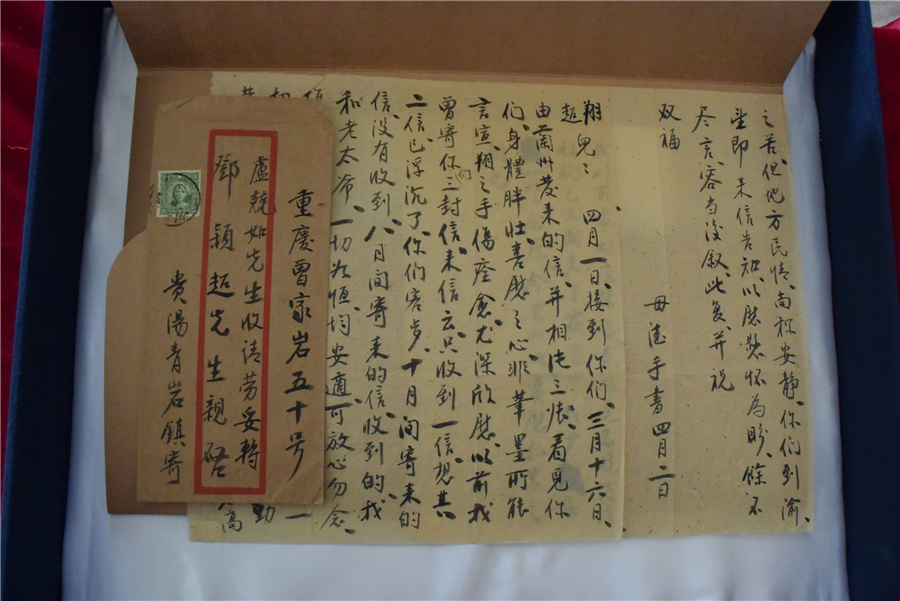 之苦,但地方民情,尚称安静,你们到渝,
望即来信告知以慰愁怀为盼,餘不
尽言,容当後叙此复并祝
双福
母德手書四月二日
翔超兒:四月一日,接到你们,三月十六日,
由蘭州發来的信,并相片三张,看見你
们,身體胖壮,喜慰之心,非筆墨所能
言宣,翔之手傷痊愈,尤深欣慰,以前我
曾寄你们三封信,来信云,只收到一信,想其
二信已浮沉了,你们客岁,十月间寄来的
信,没有收到,八月间寄来的信收到的,我
和老太爷,一切如恒,均安適,可放心勿念,
重慶曾家岩五十号
盧兢如先生收請勞妥轉
鄧穎超先生親啓
貴陽青岩鎮寄